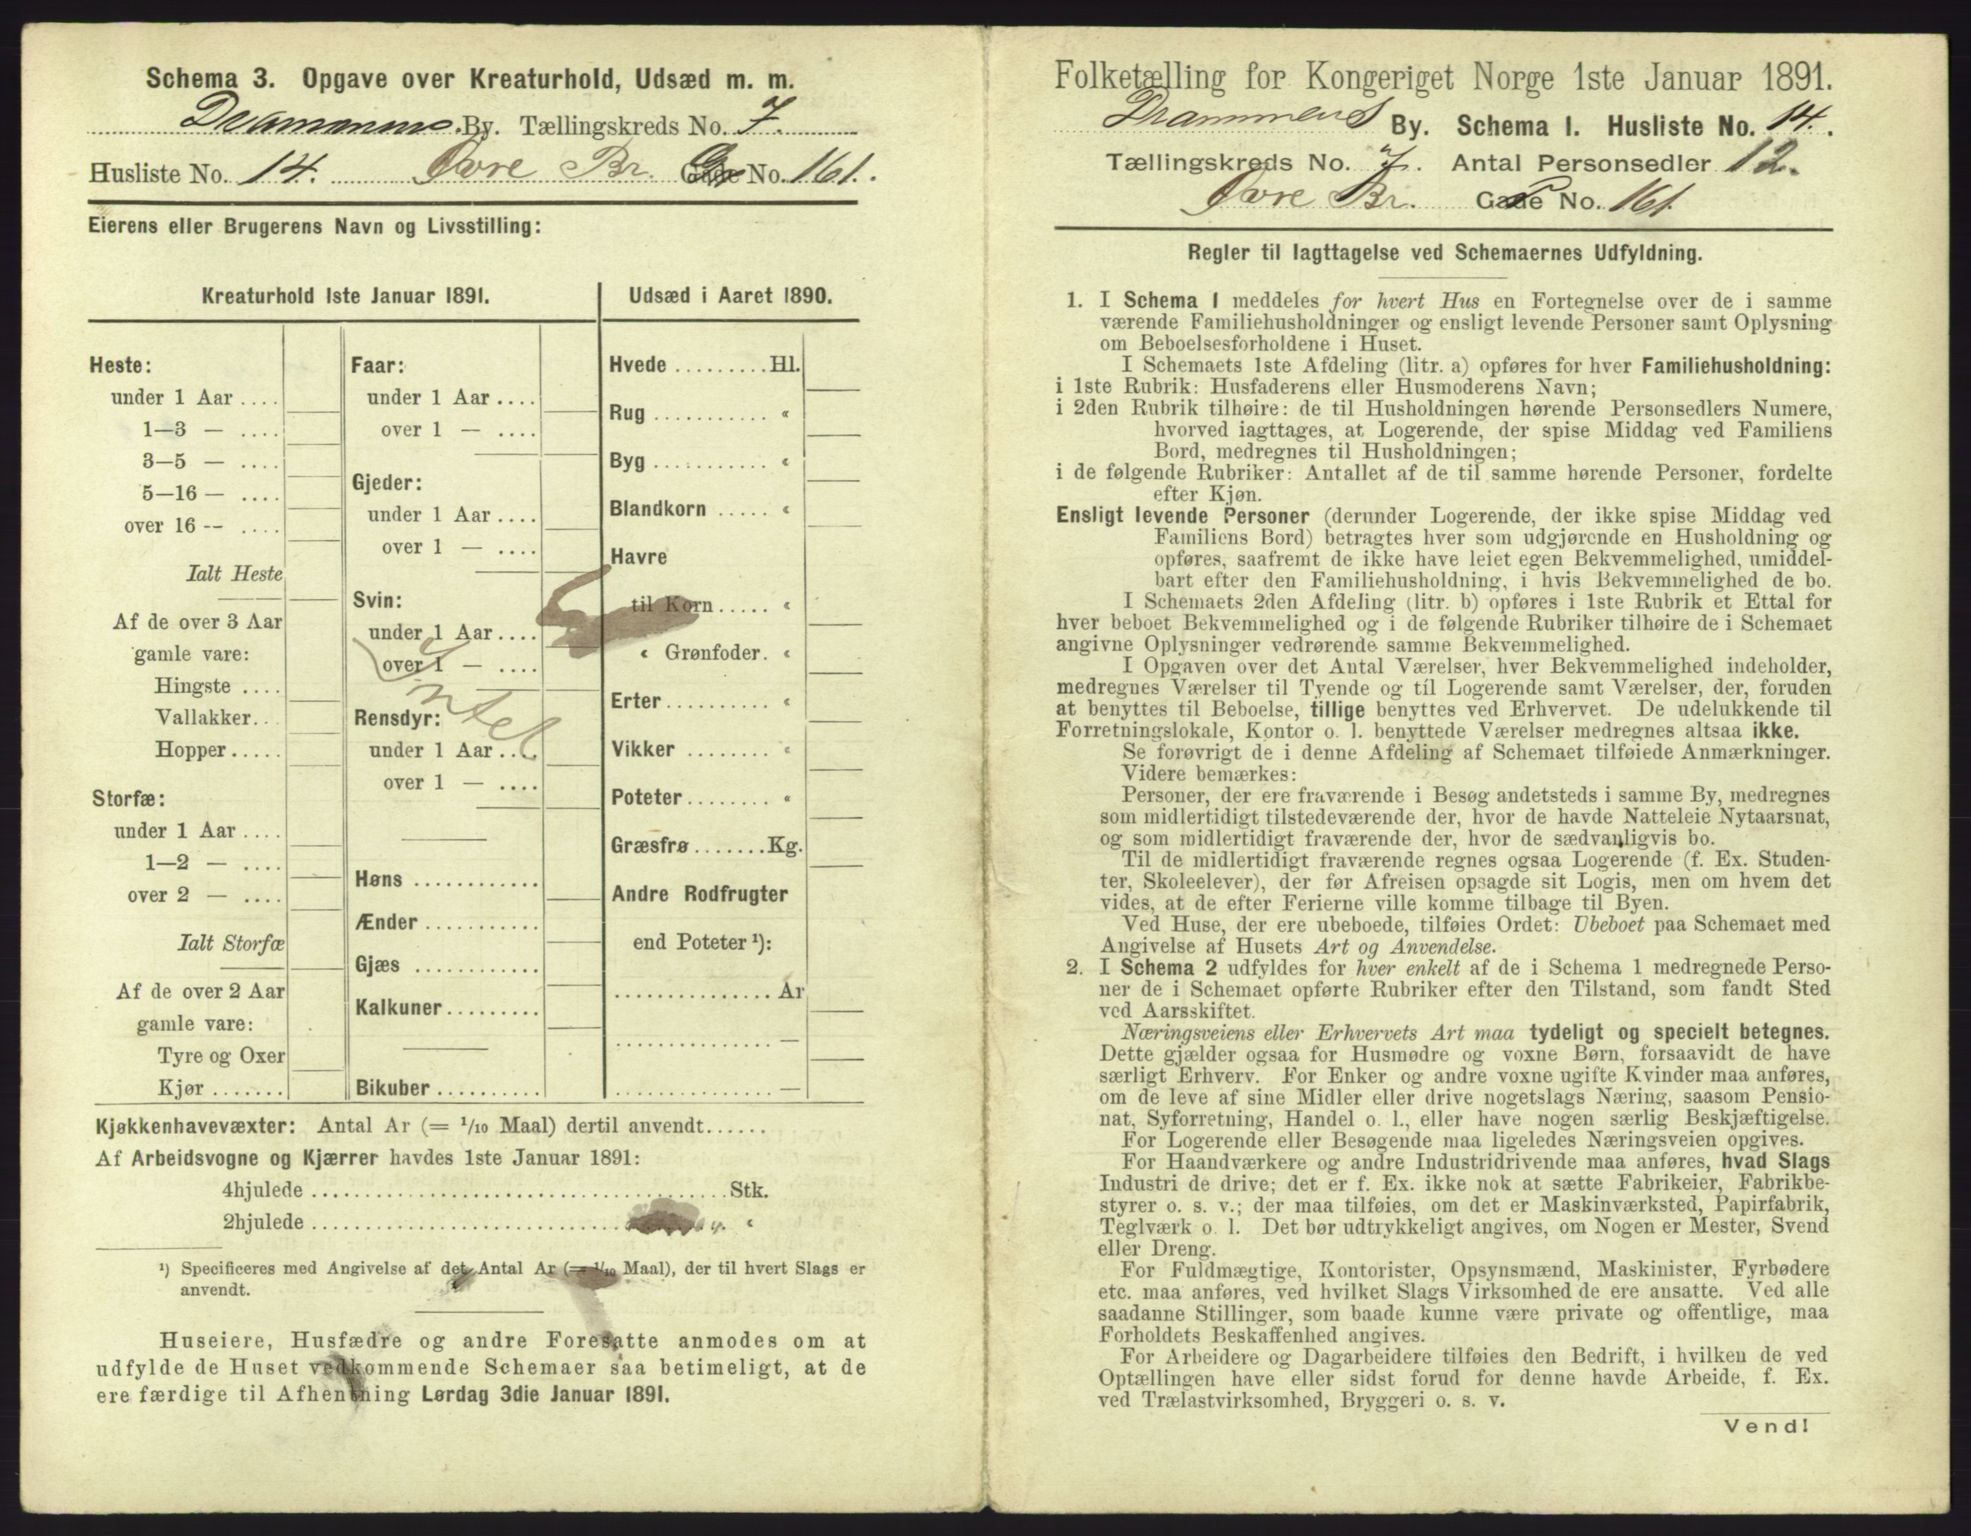 Schema 3. Opgave over Kreaturhold, Udsæd m. m.
Drammens By. Tællingskreds No. 7.
Husliste No. 14. Øvre Br. Gade No. 161.
Eierens eller Brugerens Navn og Livsstilling:
Kreaturhold 1ste Januar 1891.
Heste:
under 1 Aar ....
1—3 — ....
3—5 — ....
5—16 — ....
over 16 -- ....
Ialt Heste
Af de over 3 Aar
gamle vare:
Hingste ....
Vallakker...
Hopper .....
Storfæ:
under 1 Aar ....
1—2 — ....
over 2 — ....
Ialt Storfæ
Af de over 2 Aar
gamle vare:
Tyre og Oxer
Kjør .......
Faar:
under 1 Aar ....
over 1 — ....
Gjeder:
under 1 Aar ....
over 1 — ....
Svin:
under 1 Aar ....
over 1 — ....
Intet
Rensdyr:
under 1 Aar ...
over 1 — ....
Høns ............
Ænder ...........
Gjæs ............
Kalkuner.........
Bikuber ..........
Udsæd i Aaret 1890.
Hvede .........Hl.
Rug ........... «
Byg ........... «
Blandkorn ..... «
Havre
til Korn ..... «
« Grønfoder. «
Erter .......... «
Vikker ......... «
Poteter ........ «
Græsfrø .......Kg.
Andre Rodfrugter
end Poteter ¹):
............... Ar
............... —
............... —
Kjøkkenhavevæxter: Antal Ar (= 1/10 Maal) dertil anvendt......
Af Arbeidsvogne og Kjærrer havdes 1ste Januar 1891:
4hjulede ........................................ Stk.
2hjulede ........................................ «
¹) Specificeres med Angivelse af det Antal Ar (= 1/10 Maal), der til hvert Slags er
anvendt.
Huseiere, Husfædre og andre Foresatte anmodes om at
udfylde de Huset vedkommende Schemaer saa betimeligt, at de
ere færdige til Afhentning Lørdag 3die Januar 1891.
Folketælling for Kongeriget Norge 1ste Januar 1891.
Drammens By. Schema 1. Husliste No. 14.
Tællingskreds No. 7. Antal Personsedler 12.
Øvre Br. Gade No. 161
Regler til Iagttagelse ved Schemaernes Udfyldning.
1. I Schema 1 meddeles for hvert Hus en Fortegnelse over de i samme
værende Familiehusholdninger og ensligt levende Personer samt Oplysning
om Beboelsesforholdene i Huset.
I Schemaets 1ste Afdeling (litr. a) opføres for hver Familiehusholdning:
i 1ste Rubrik: Husfaderens eller Husmoderens Navn;
i 2den Rubrik tilhøire: de til Husholdningen hørende Personsedlers Numere,
hvorved iagttages, at Logerende, der spise Middag ved Familiens
Bord, medregnes til Husholdningen;
i de følgende Rubriker: Antallet af de til samme hørende Personer, fordelte
efter Kjøn.
Ensligt levende Personer (derunder Logerende, der ikke spise Middag ved
Familiens Bord) betragtes hver som udgjørende en Husholdning og
opføres, saafremt de ikke have leiet egen Bekvemmelighed, umiddel-
bart efter den Familiehusholdning, i hvis Bekvemmelighed de bo.
I Schemaets 2den Afdeling (litr. b) opføres i 1ste Rubrik et Ettal for
hver beboet Bekvemmelighed og i de følgende Rubriker tilhøire de i Schemaet
angivne Oplysninger vedrørende samme Bekvemmelighed.
I Opgaven over det Antal Værelser, hver Bekvemmelighed indeholder,
medregnes Værelser til Tyende og til Logerende samt Værelser, der, foruden
at benyttes til Beboelse, tillige benyttes ved Erhvervet. De udelukkende til
Forretningslokale, Kontor o. l. benyttede Værelser medregnes altsaa ikke.
Se forøvrigt de i denne Afdeling af Schemaet tilføiede Anmærkninger.
Videre bemærkes:
Personer, der ere fraværende i Besøg andetsteds i samme By, medregnes
som midlertidigt tilstedeværende der, hvor de havde Natteleie Nytaarsnat,
og som midlertidigt fraværende der, hvor de sædvanligvis bo.
Til de midlertidigt fraværende regnes ogsaa Logerende (f. Ex. Studen-
ter, Skoleelever), der før Afreisen opsagde sit Logis, men om hvem det
vides, at de efter Ferierne ville komme tilbage til Byen.
Ved Huse, der ere ubeboede, tilføies Ordet: Ubeboet paa Schemaet med
Angivelse af Husets Art og Anvendelse.
2. I Schema 2 udfyldes for hver enkelt af de i Schema 1 medregnede Perso-
ner de i Schemaet opførte Rubriker efter den Tilstand, som fandt Sted
ved Aarsskiftet.
Næringsveiens eller Erhvervets Art maa tydeligt og specielt betegnes.
Dette gjælder ogsaa for Husmødre og voxne Børn, forsaavidt de have
særligt Erhverv. For Enker og andre voxne ugifte Kvinder maa anføres,
om de leve af sine Midler eller drive nogetslags Næring, saasom Pensio-
nat, Syforretning, Handel o. l., eller have nogen særlig Beskjæftigelse.
For Logerende eller Besøgende maa ligeledes Næringsveien opgives.
For Haandværkere og andre Industridrivende maa anføres, hvad Slags
Industri de drive; det er f. Ex. ikke nok at sætte Fabrikeier, Fabrikbe-
styrer o. s. v.; der maa tilføies, om det er Maskinværksted, Papirfabrik,
Teglværk o. l. Det bør udtrykkeligt angives, om Nogen er Mester, Svend
eller Dreng.
For Fuldmægtige, Kontorister, Opsynsmænd, Maskinister, Fyrbødere
etc. maa anføres, ved hvilket Slags Virksomhed de ere ansatte. Ved alle
saadanne Stillinger, som baade kunne være private og offentlige, maa
Forholdets Beskaffenhed angives.
For Arbeidere og Dagarbeidere tilføies den Bedrift, i hvilken de ved
Optællingen have eller sidst forud for denne havde Arbeide, f. Ex.
ved Trælastvirksomhed, Bryggeri o. s. v.
Vend!